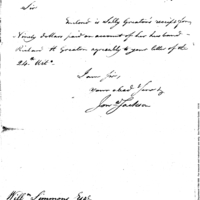 Sir
Enclosed is Sally Greaton's receipt for
Ninety dollars paid on account of her husband
Richard H Greaton agreeably to your letter of the
24th Ult.
I am Sir,
your obed Serv
Jon Jackson
Willm Simmons Esqr